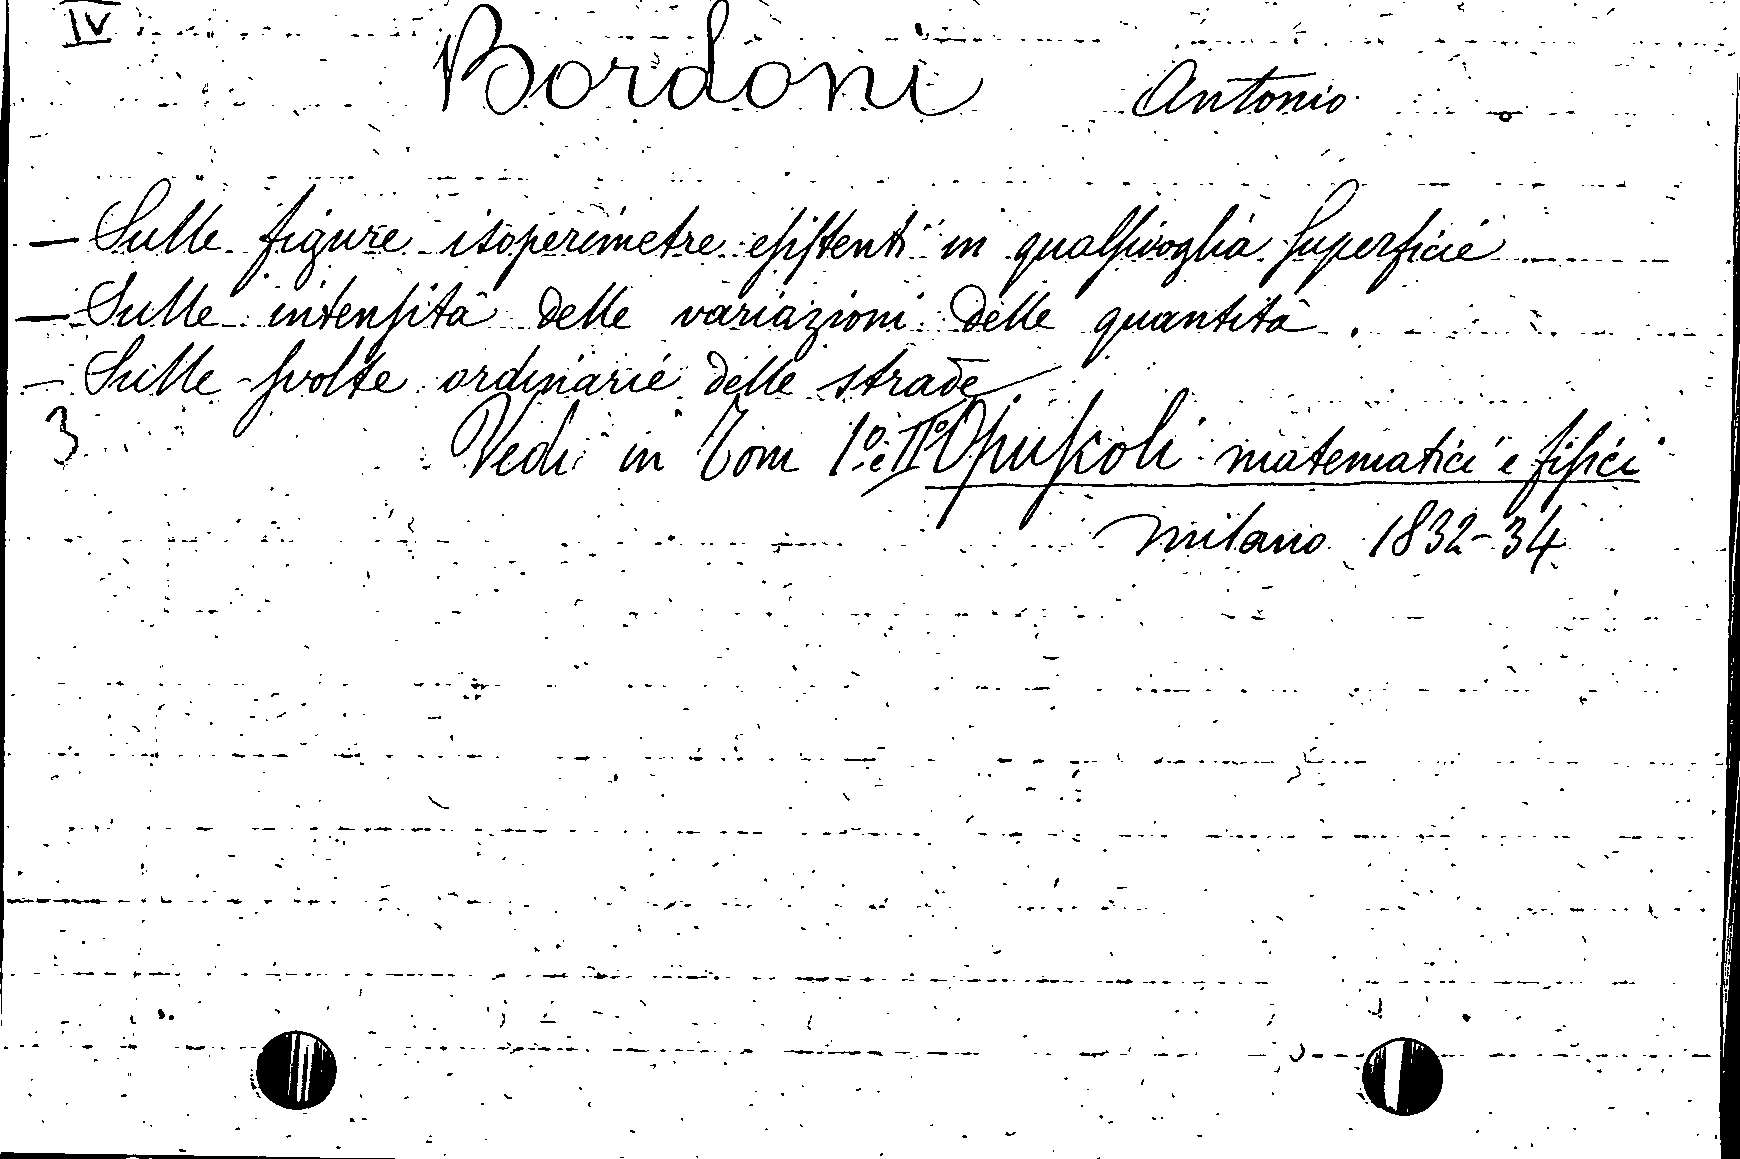 IV
Bordoni Antonio
— Sulle figure isoperimetre esistenti in qualsivoglia superficie
— Sulle intensità delle variazioni delle quantità.
— Sulle svolte ordinarie delle strade
3 Vedi in Tom 1º e IIº Opuscoli matematici e fisici
Milano 1832-34